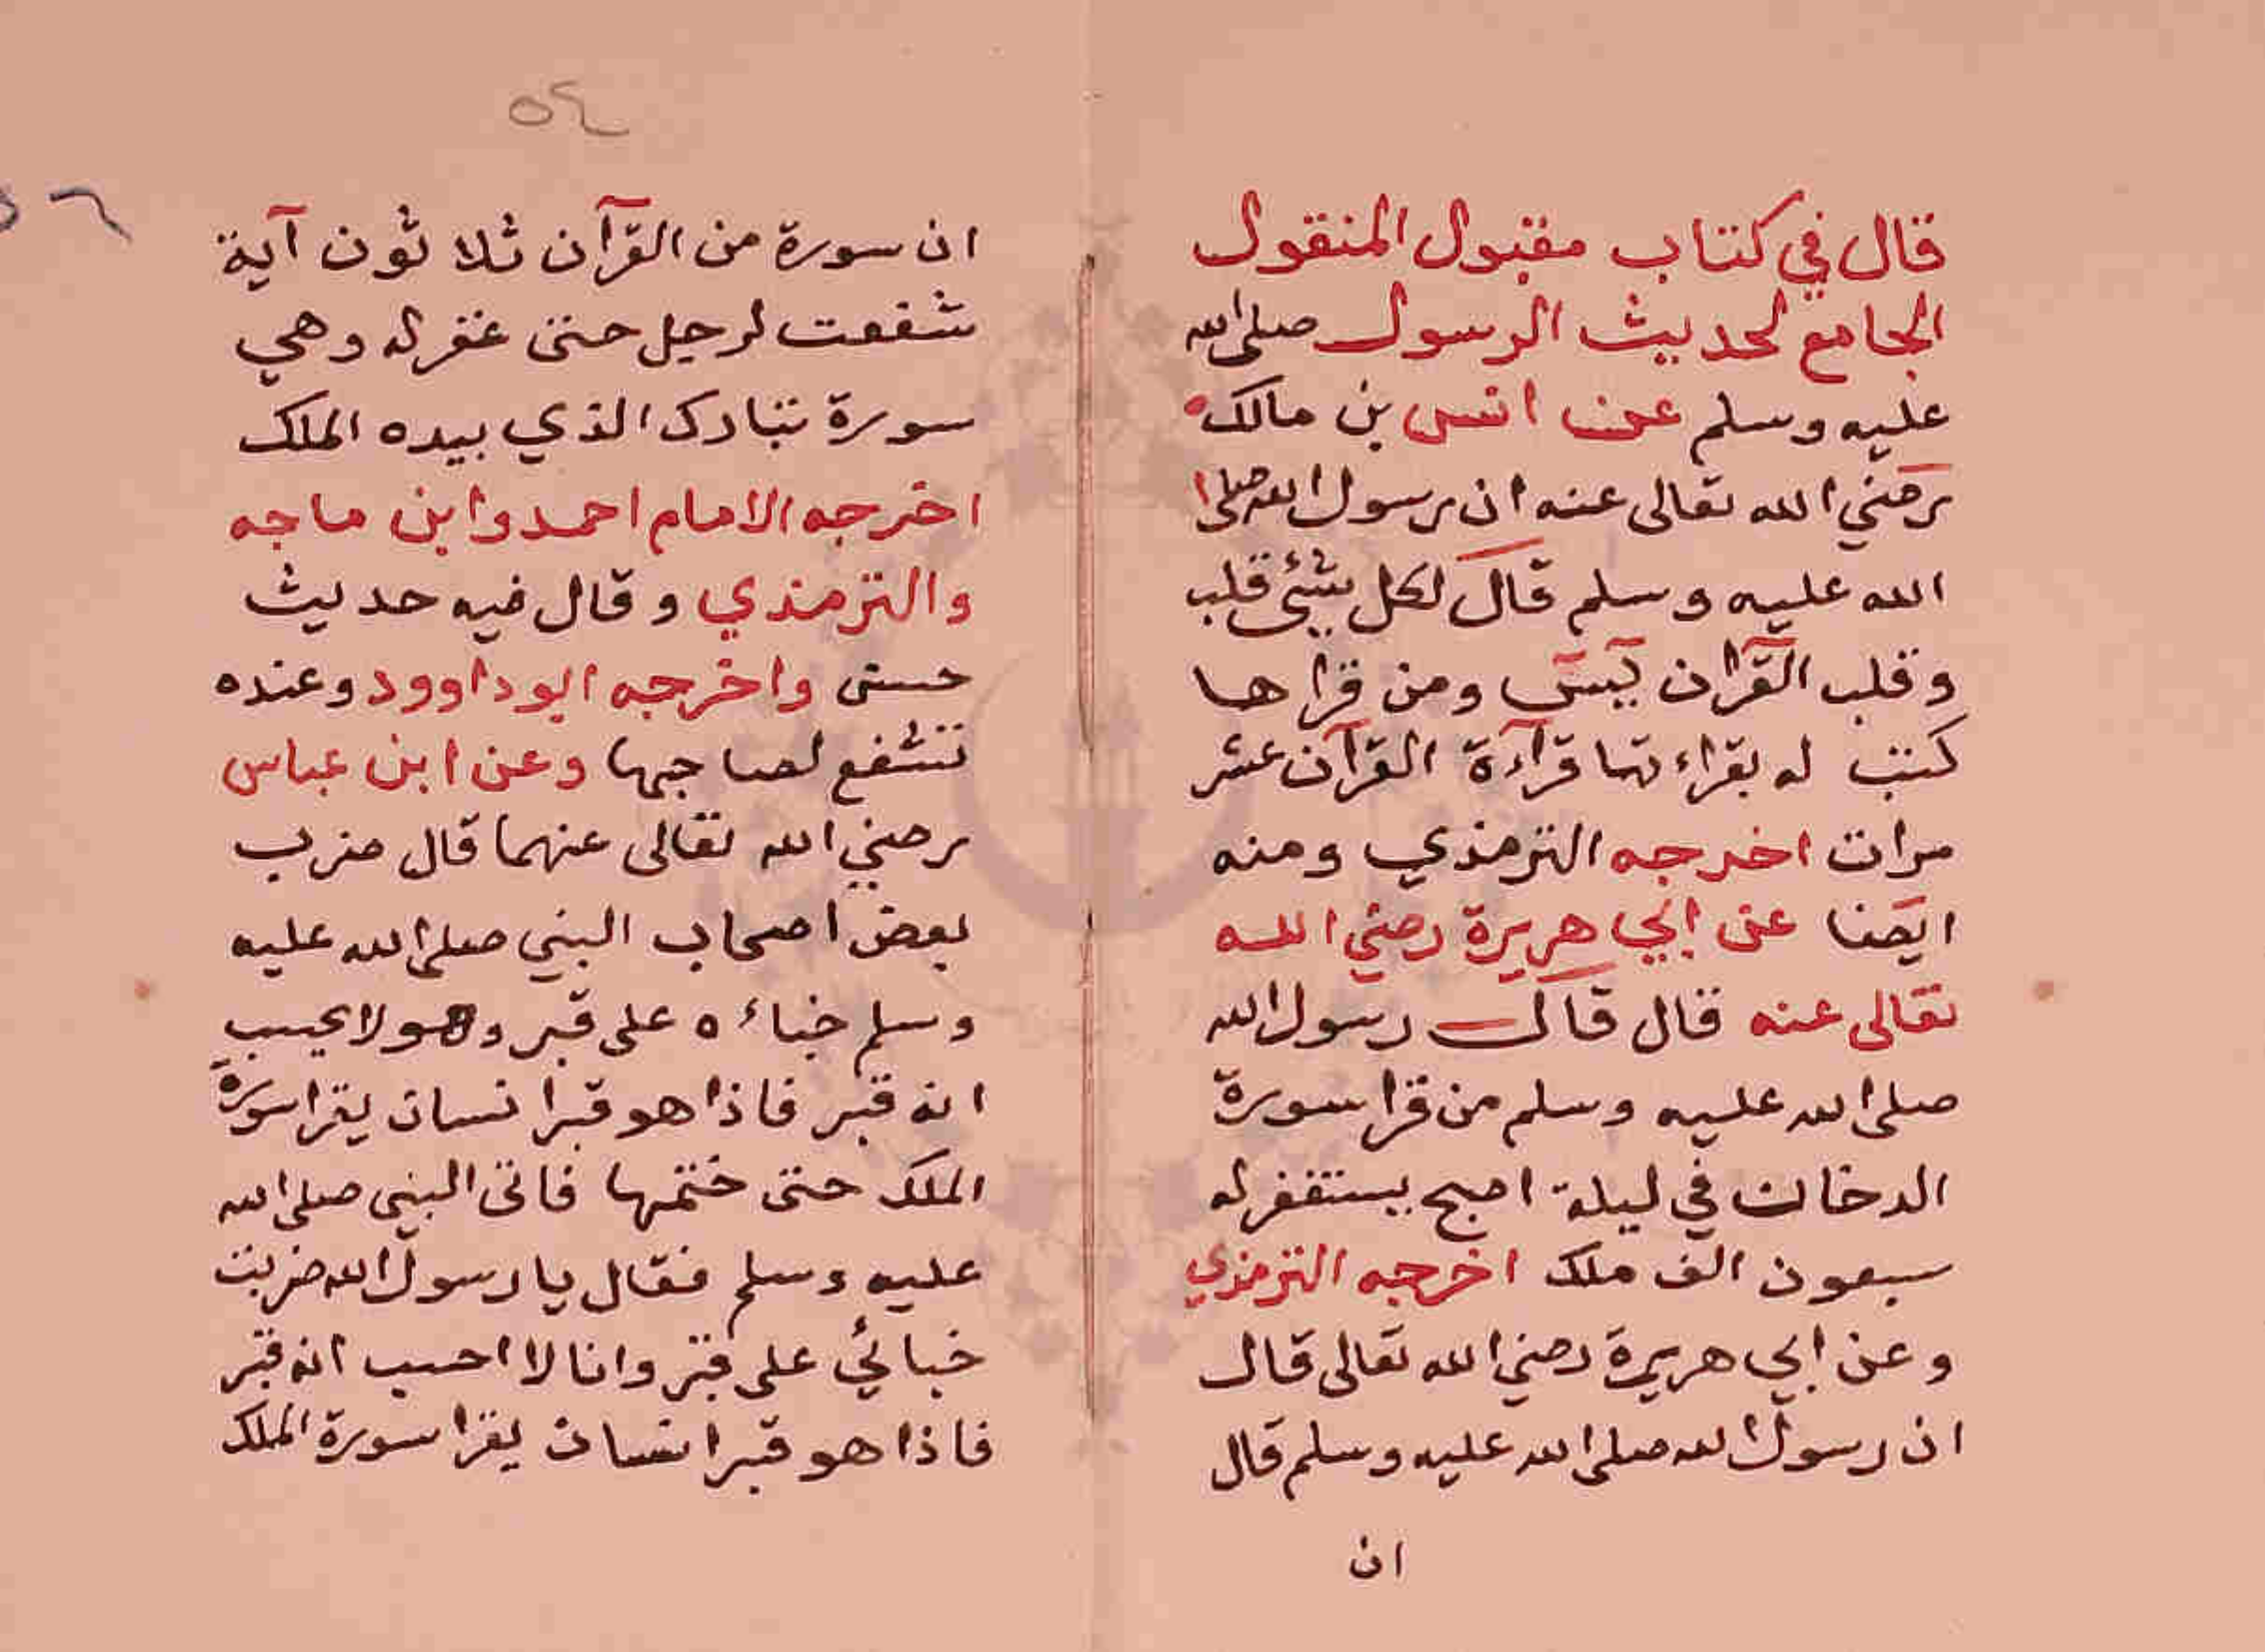 قال في كتاب مقبول المنقول
الجامع لحديث الرسول صلى الله
عليه وسلم عن انس بن مالك
رضي الله تعالى عنه ان رسول الله صلى
الله عليه وسلم قال لكل شئ قلب
وقلب القرآن يٓسٓ ومن قرأ ها
كتب له بقراء تها قرآءة القرآن عشر
مرات اخرجه الترمذي ومنه
ايضا عن ابي هريرة رضي الله
تعالى عنه قال قال رسول الله
صلى الله عليه وسلم من قرا سورة
الدخان في ليلة اصبح يستغفر له
سبعون الف ملك اخرجه الترمذي
وعن ابي هريرة رضي الله تعالى قال
ان رسول الله صلى الله عليه وسلم قال
ان
٥٤
٥٦
ان سورة من القرآن ثلا ثون آية
شفعت لرجل حتى غفر له وهي
سورة تبارك الذي بيده الملك
اخرجه الامام احمد وابن ماجه
والترمذي وقال فيه حديث
حسن واخرجه ابو داوود وعنده
تشفع لصاحبها وعن ابن عباس
رضي الله تعالى عنهما قال ضرب
بعض اصحاب النبي صلى الله عليه
وسلم خباء ه على قبر وهو لا يحسب
انه قبر فاذا هو قبر انسان يقرا سورة
الملك حتى ختمها فاتى النبي صلى الله
عليه وسلم فقال يا رسول الله ضربت
خبائي على قبر وانا لا احسب انه قبر
فاذا هو قبر انسان يقرا سورة الملك